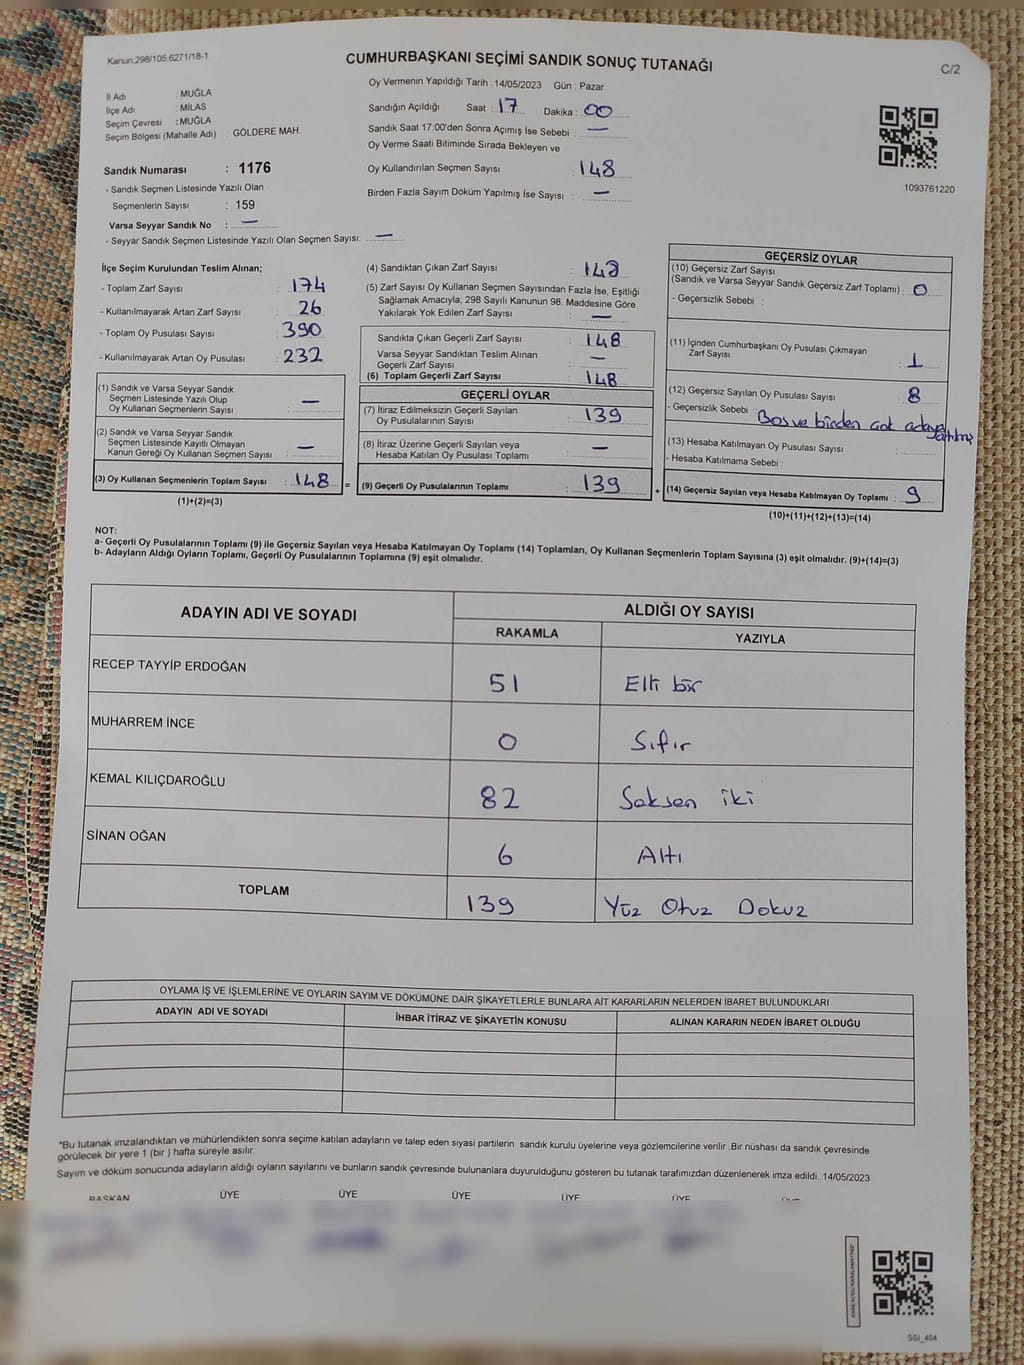 Kanun:298/105,6271/18-1
CUMHURBAŞKANI SEÇİMİ SANDIK SONUÇ TUTANAĞI
C/2
İl Adı : MUĞLA
İlçe Adı : MİLAS
Seçim Çevresi : MUĞLA
Seçim Bölgesi (Mahalle Adı) : GÖLDERE MAH.
Oy Vermenin Yapıldığı Tarih : 14/05/2023 Gün : Pazar
Sandığın Açıldığı Saat : 17 Dakika : 00
Sandık Saat 17:00'den Sonra Açımış İse Sebebi : —
Oy Verme Saati Bitiminde Sırada Bekleyen ve
Oy Kullandırılan Seçmen Sayısı : 148
Birden Fazla Sayım Döküm Yapılmış İse Sayısı : —
1093761220
Sandık Numarası : 1176
- Sandık Seçmen Listesinde Yazılı Olan
Seçmenlerin Sayısı : 159
Varsa Seyyar Sandık No : —
- Seyyar Sandık Seçmen Listesinde Yazılı Olan Seçmen Sayısı: —
İlçe Seçim Kurulundan Teslim Alınan;
- Toplam Zarf Sayısı : 174
- Kullanılmayarak Artan Zarf Sayısı : 26
- Toplam Oy Pusulası Sayısı : 390
- Kullanılmayarak Artan Oy Pusulası : 232
(1) Sandık ve Varsa Seyyar Sandık
Seçmen Listesinde Yazılı Olup
Oy Kullanan Seçmenlerin Sayısı : —
(2) Sandık ve Varsa Seyyar Sandık
Seçmen Listesinde Kayıtlı Olmayan
Kanun Gereği Oy Kullanan Seçmen Sayısı : —
(3) Oy Kullanan Seçmenlerin Toplam Sayısı : 148 =
(1)+(2)=(3)
(4) Sandıktan Çıkan Zarf Sayısı : 148
(5) Zarf Sayısı Oy Kullanan Seçmen Sayısından Fazla İse, Eşitliği
Sağlamak Amacıyla, 298 Sayılı Kanunun 98. Maddesine Göre
Yakılarak Yok Edilen Zarf Sayısı : —
Sandıkta Çıkan Geçerli Zarf Sayısı : 148
Varsa Seyyar Sandıktan Teslim Alınan
Geçerli Zarf Sayısı : —
(6) Toplam Geçerli Zarf Sayısı : 148
GEÇERLİ OYLAR
(7) İtiraz Edilmeksizin Geçerli Sayılan
Oy Pusulalarının Sayısı : 139
(8) İtiraz Üzerine Geçerli Sayılan veya
Hesaba Katılan Oy Pusulaları Toplamı : —
(9) Geçerli Oy Pusulalarının Toplamı : 139 +
GEÇERSİZ OYLAR
(10) Geçersiz Zarf Sayısı
(Sandık ve Varsa Seyyar Sandık Geçersiz Zarf Toplamı) : 0
- Geçersizlik Sebebi :
(11) İçinden Cumhurbaşkanı Oy Pusulası Çıkmayan
Zarf Sayısı : 1
(12) Geçersiz Sayılan Oy Pusulası Sayısı : 8
- Geçersizlik Sebebi : Bos ve birden çok adaya
(13) Hesaba Katılmayan Oy Pusulası Sayısı :
- Hesaba Katılmama Sebebi :
(14) Geçersiz Sayılan veya Hesaba Katılmayan Oy Toplamı : 9
(10)+(11)+(12)+(13)=(14)
NOT:
a- Geçerli Oy Pusulalarının Toplamı (9) ile Geçersiz Sayılan veya Hesaba Katılmayan Oy Toplamı (14) Toplamları, Oy Kullanan Seçmenlerin Toplam Sayısına (3) eşit olmalıdır. (9)+(14)=(3)
b- Adayların Aldığı Oyların Toplamı, Geçerli Oy Pusulalarının Toplamına (9) eşit olmalıdır.
ADAYIN ADI VE SOYADI
ALDIĞI OY SAYISI
RAKAMLA YAZIYLA
RECEP TAYYİP ERDOĞAN 51 Elli bir
MUHARREM İNCE 0 Sıfır
KEMAL KILIÇDAROĞLU 82 Seksen iki
SİNAN OĞAN 6 Altı
TOPLAM 139 Yüz Otuz Dokuz
OYLAMA İŞ VE İŞLEMLERİNE VE OYLARIN SAYIM VE DÖKÜMÜNE DAİR ŞİKAYETLERLE BUNLARA AİT KARARLARIN NELERDEN İBARET BULUNDUKLARI
ADAYIN ADI VE SOYADI İHBAR İTİRAZ VE ŞİKAYETİN KONUSU ALINAN KARARIN NEDEN İBARET OLDUĞU
*Bu tutanak imzalandıktan ve mühürlendikten sonra seçime katılan adayların ve talep eden siyasi partilerin sandık kurulu üyelerine veya gözlemcilerine verilir .Bir nüshası da sandık çevresinde
görülecek bir yere 1 (bir ) hafta süreyle asılır.
Sayım ve döküm sonucunda adayların aldığı oyların sayılarını ve bunların sandık çevresinde bulunanlara duyurulduğunu gösteren bu tutanak tarafımızdan düzenlenerek imza edildi. 14/05/2023
BAŞKAN ÜYE ÜYE ÜYE ÜYE ÜYE
SSI_404